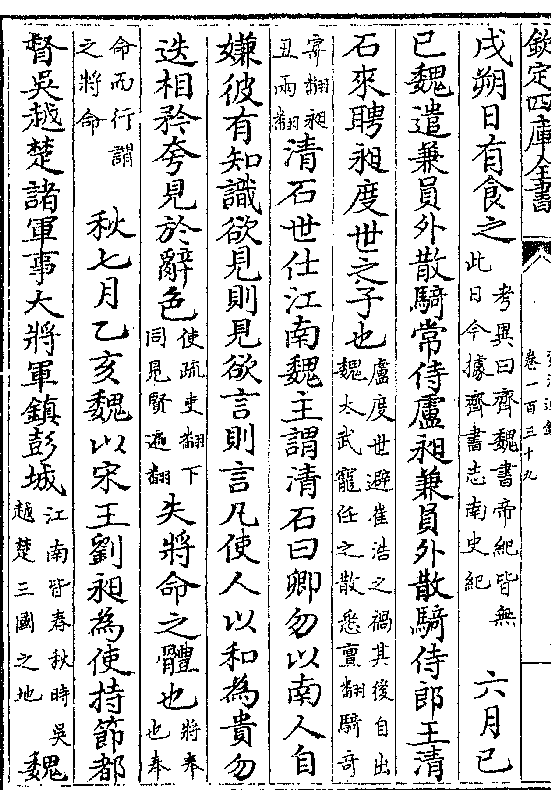 欽定四庫全書
卷一百三十九
戌朔日有食之考異曰齊魏書帝紀皆無此日今據齊書志南史紀 六月己
巳魏遣兼員外散騎常侍盧昶兼員外散騎侍郎王清
石來聘昶度世之子也盧度世避崔浩之禍其後自出魏太武寵任之散悉亶翻騎奇
寄翻昶丑兩翻清石世仕江南魏主謂清石曰卿勿以南人自
嫌彼有知識欲見則見欲言則言凡使人以和為貴勿
迭相矜夸見於辭色使疏吏翻下同見賢遍翻失將命之體也將奉也奉
命而行謂之將命 秋七月乙亥魏以宋王劉昶為使持節都
督吳越楚諸軍事大將軍鎮彭城江南皆春秋時吳越楚三國之地 魏